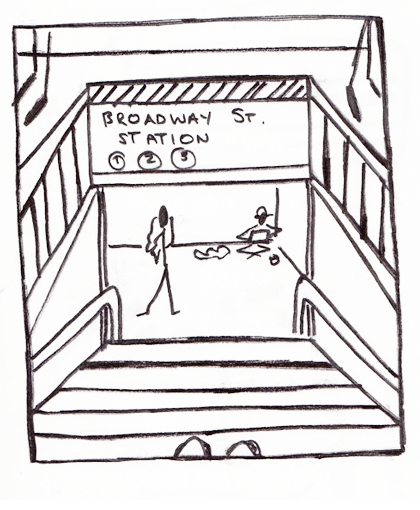 BROADWAY ST.
STATION
1 2 3